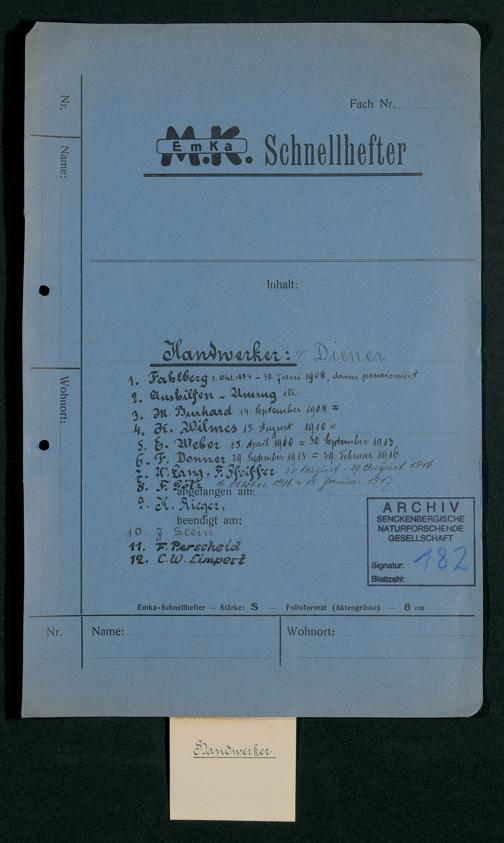 Fach Nr.
M.K. EmKa Schnellhefter
Inhalt:
Handwerker: Diener
1. Fahlberg 1. Mai 1884 – 30. Juni 1908, dann pensioniert
2. Aushilfen – Umzug etc.
3. M. Burkard 14. September 1908 =
4. K. Wilmes 15. August 1910 =
5. E. Weber 15. April 1910 = 30. September 1913
6. F. Donner 29. September 1913 = 29. Februar 1916
7. W. Lang, F. Pfeiffer 22. August – 29 August 1916
8. F. Götz 16. Oktober 1916 – 15. Januar 1917
angefangen am:
9. K. Rieger,
beendigt am:
10. J Stein
11. F. Perscheid
12. C.W. Limpert
ARCHIV
SENCKENBERGISCHE
NATURFORSCHENDE
GESELLSCHAFT
Signatur: 182
Blattzahl:
Emka-Schnellhefter — Stärke: S — Folioformat (Aktengrösse) — 8 cm
Nr. Name: Wohnort:
Nr.
Name:
Wohnort:
Handwerker